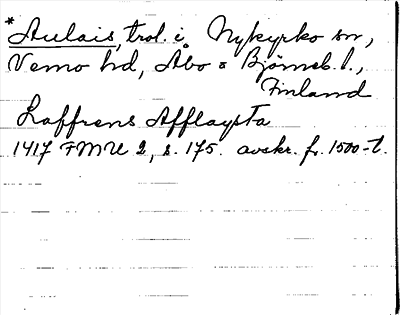 *Aulais, trol. i Nykyrko sn,
Vemo hd, Åbo o Björneb. l.,
Finland
Laffrens Afflaysta
1417 FMU 2, s. 175. avskr. fr. 1500-t.